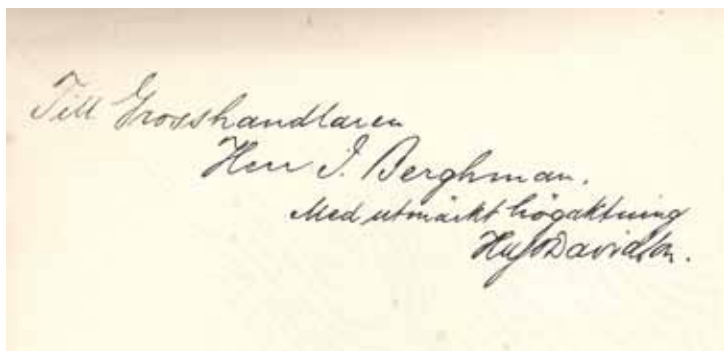 Till Grosshandlaren
Herr J. Berghman.
Med utmärkt högaktning
Davidson.